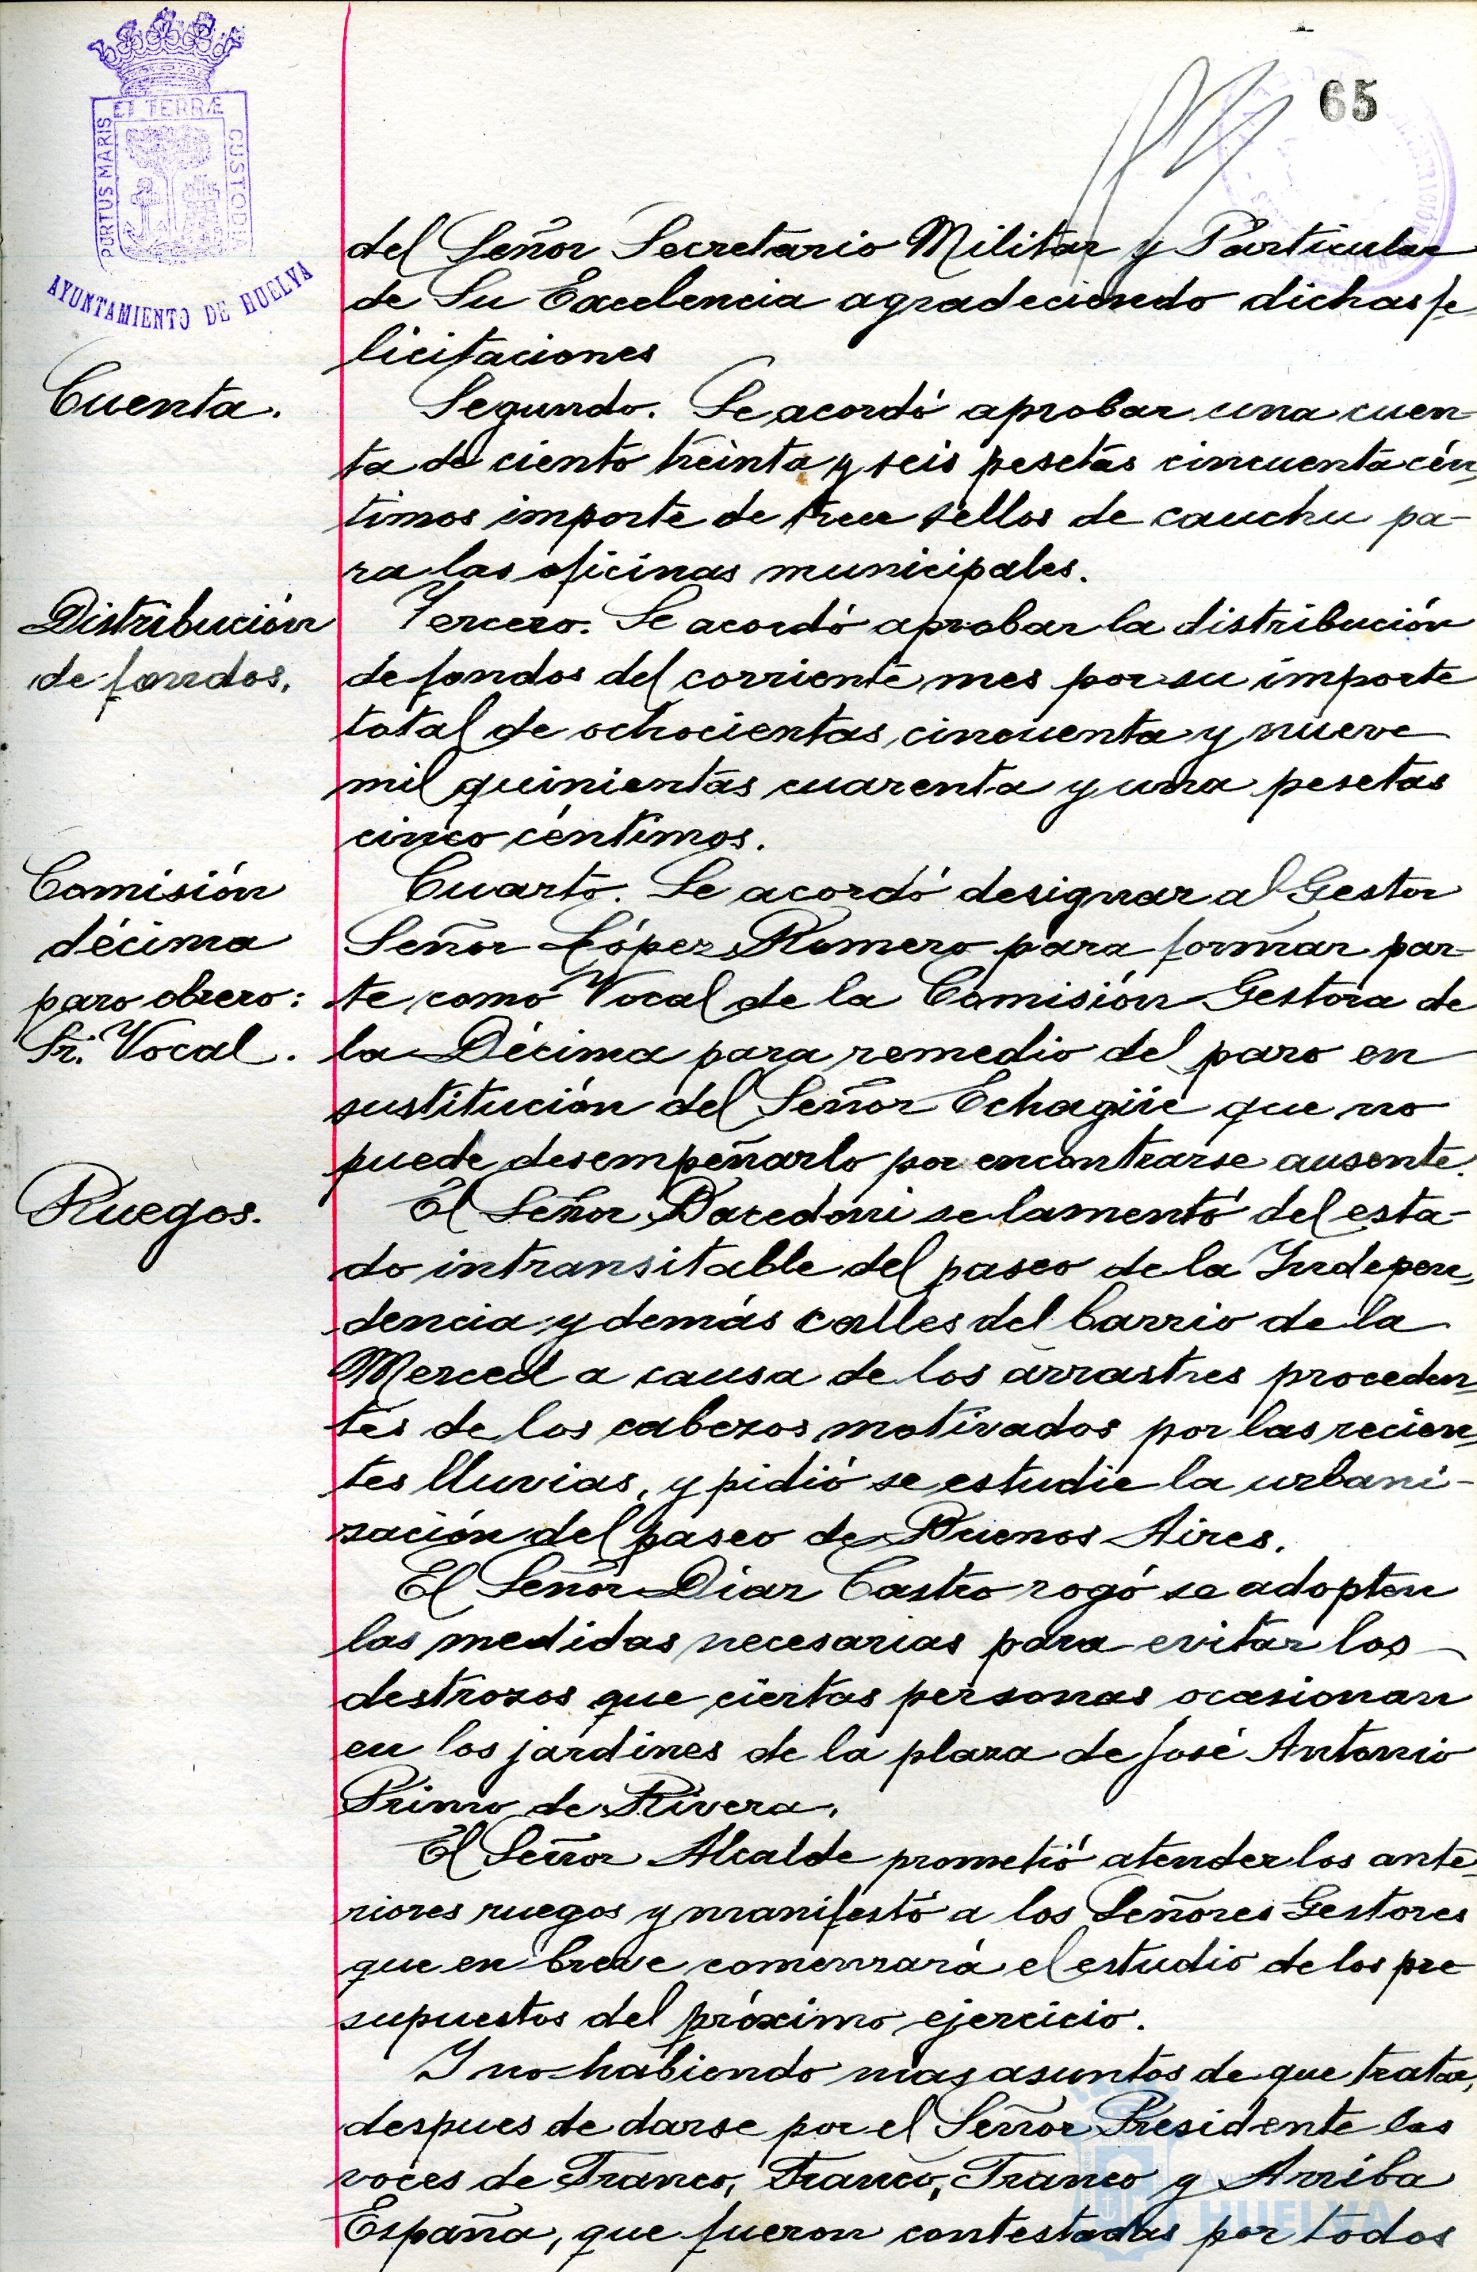 65
PORTUS MARIS
ET TERRÆ
CUSTODIA
AYUNTAMIENTO DE HUELVA
del Señor Secretario Militar y Particular
de Su Excelencia agradeciendo dichas fe
licitaciones
Cuenta.
Segundo. Se acordó aprobar una cuen-
ta de ciento treinta y seis pesetas cincuenta cén
timos importe de trece sellos de cauchu pa-
ra las oficinas municipales.
Distribución
de fondos.
Tercero. Se acordó aprobar la distribución
de fondos del corriente mes por su importe
total de ochocientas cincuenta y nueve
mil quinientas cuarenta y una pesetas
cinco céntimos.
Comisión
décima
paro obrero:
Sr. Vocal.
Cuarto. Se acordó designar al Gestor
Señor López Romero para formar par-
te como Vocal de la Comisión Gestora de
la Décima para remedio del paro en
sustitución del Señor Echagüe que no
puede desempeñarlo por encontrarse ausente.
Ruegos.
El Señor se lamentó del esta-
do intransitable del paseo de la Indepen
dencia y demás calles del barrio de la
Merced a causa de los arrastres proceden
tes de los cabezos motivados por las recien
tes lluvias, y pidió se estudie la urbani-
zación del paseo de Buenos Aires.
El Señor Diaz Castro rogó se adopten
las medidas necesarias para evitar los
destrozos que ciertas personas ocasionan
en los jardines de la plaza de José Antonio
Primo de Rivera.
El Señor Alcalde prometió atender los ante
riores ruegos y manifestó a los Señores Gestores
que en breve comenzará el estudio de los pre
supuestos del próximo ejercicio.
Y no habiendo mas asuntos de que tratar,
despues de darse por el Señor Presidente las
voces de Franco, Franco, Franco y Arriba
España, que fueron contestadas por todos
HUELVA